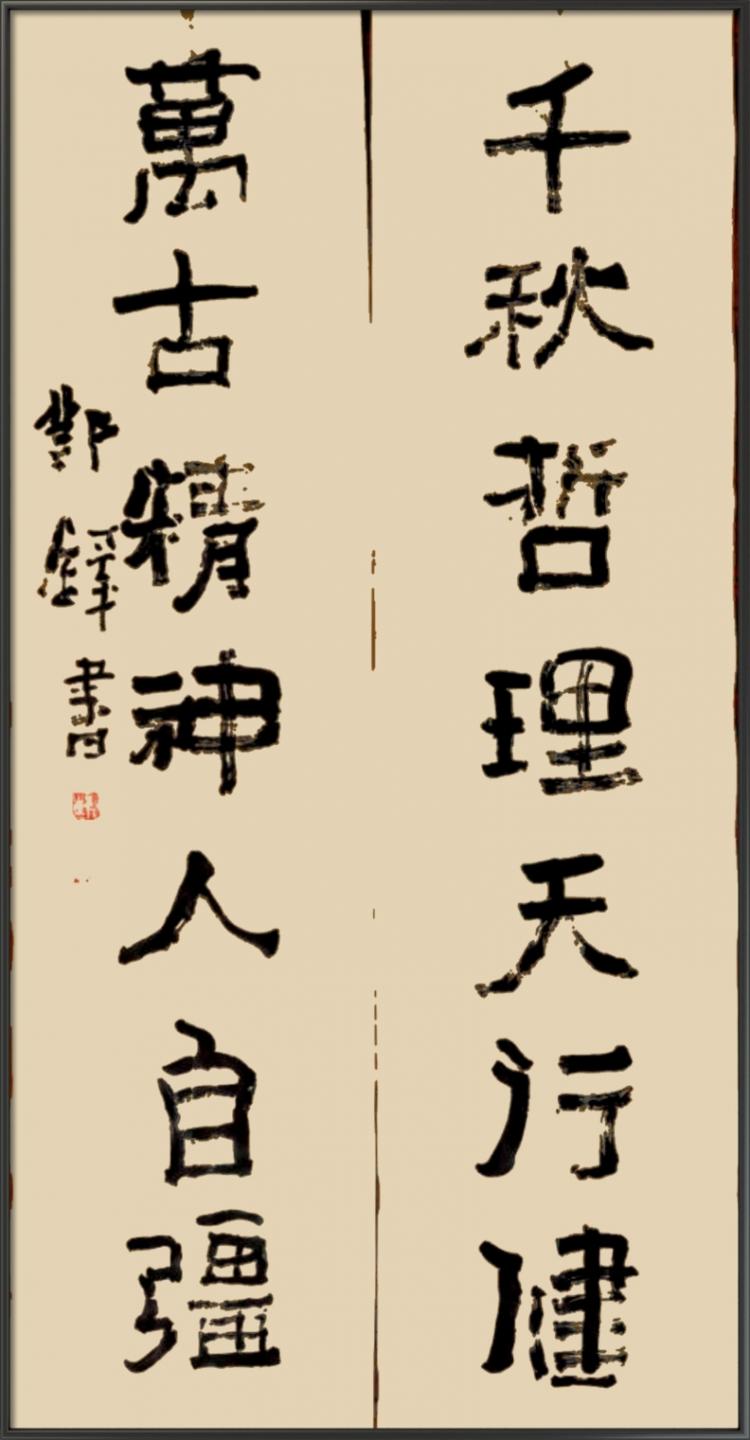 千秋哲理天行健
萬古精神人自彊
鄧鐸書